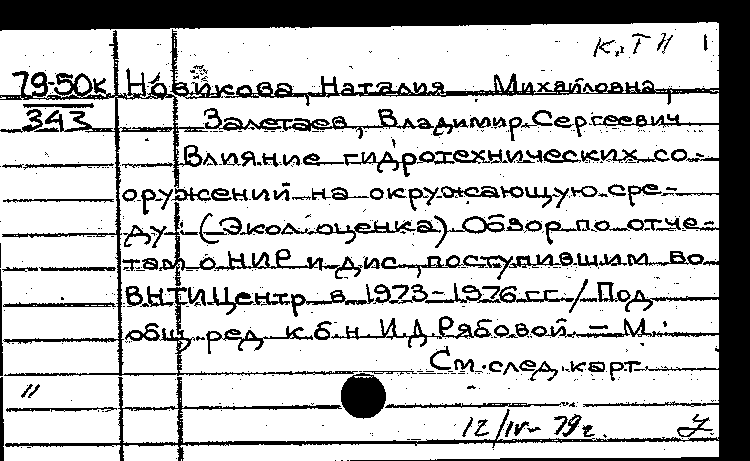 К.ТН 1
79-50к Новикова, Наталия Михайловна,
343 Залетаев, Владимир Сергеевич
Влияние гидротехнических со-
оружений на окружающую сре-
ду: (Экол. оценка) Обзор по отче-
там о НИР и дис., поступившим во
ВНТИЦентр в 1973-1976 гг. / Под
общ. ред. к.б.н. И.Д. Рябовой. - М.:
См. след. карт.
"
12/IV- 79 г.